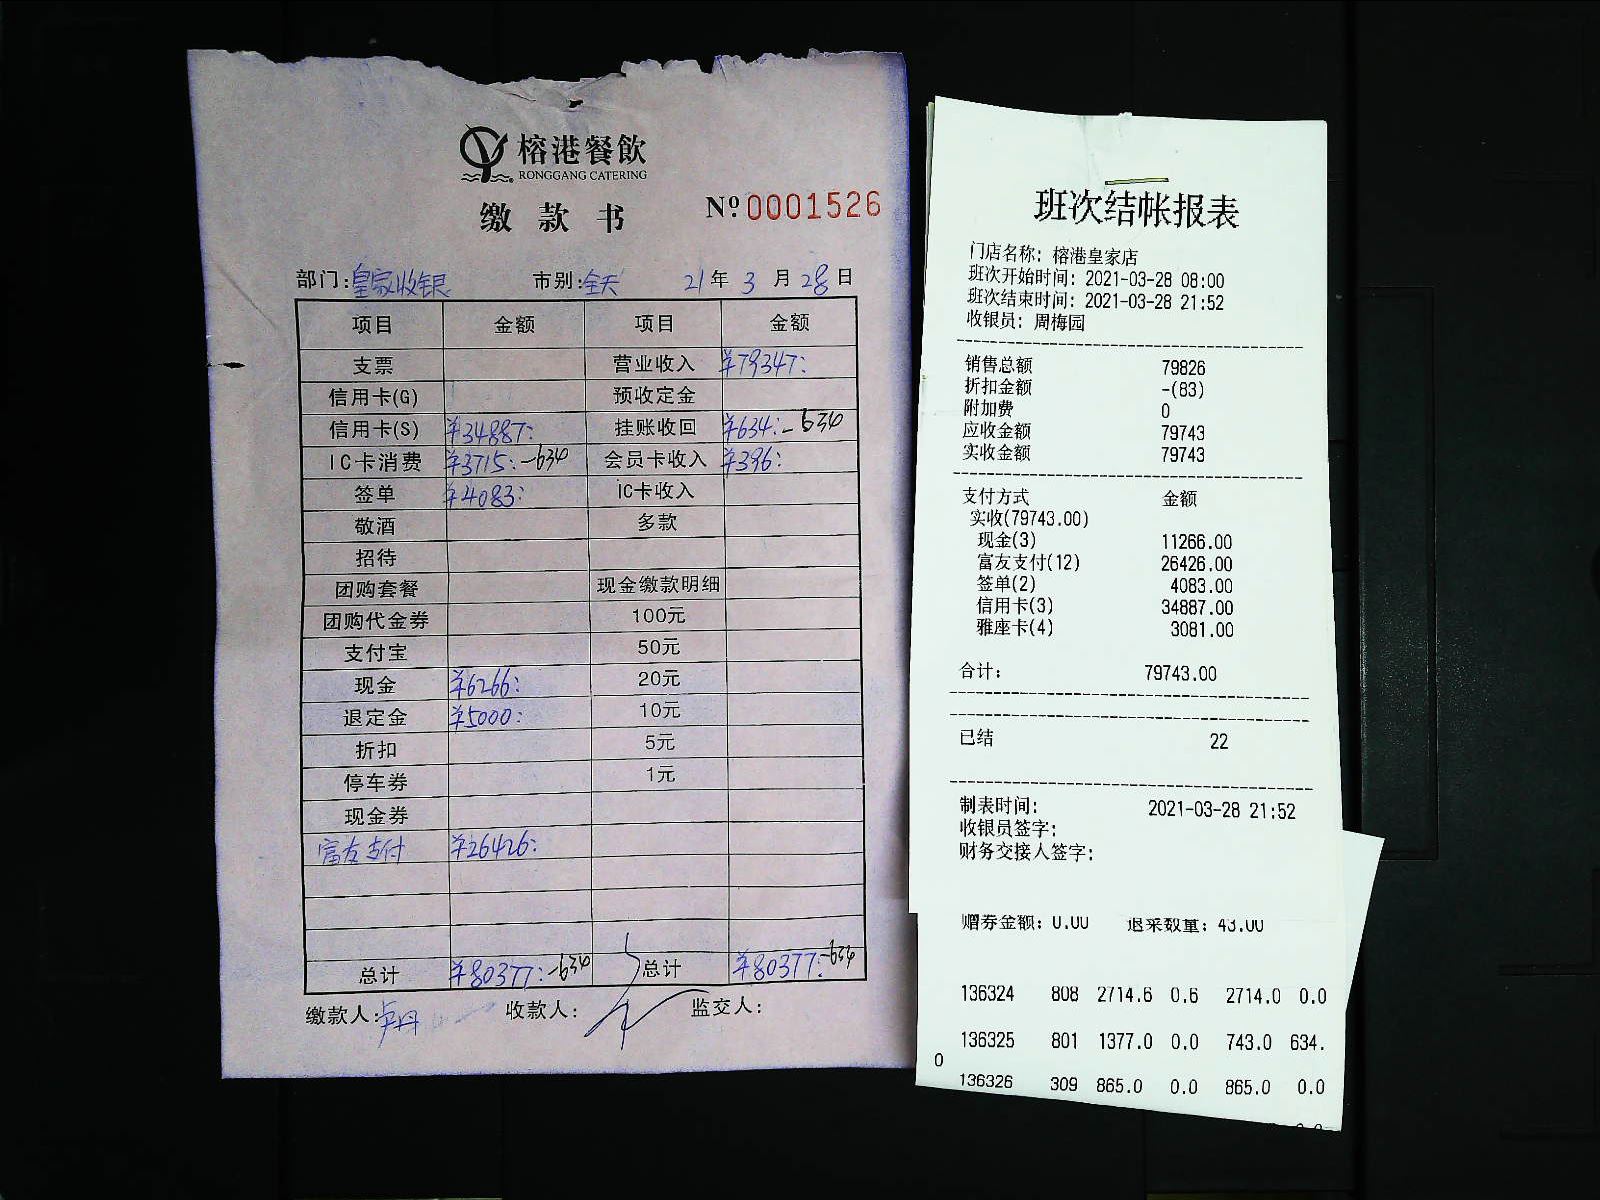 榕港餐飲
RONGGANG CATERING
缴款书
№ 0001526
部门:皇家收银 市别:全天 21年3月28日
项目 金额 项目 金额
支票 营业收入 ¥79347:
信用卡(G) 预收定金
信用卡(S) ¥34887: 挂账收回 ¥634:-634
IC卡消费 ¥3715:-634 会员卡收入 ¥396:
签单 ¥4083: IC卡收入
敬酒 多款
招待
团购套餐 现金缴款明细
团购代金券 100元
支付宝 50元
现金 ¥6266: 20元
退定金 ¥5000: 10元
折扣 5元
停车券 1元
现金券
富友支付 ¥26426:
总计 ¥80377:-634 总计 ¥80377:-634
缴款人:卢丹 收款人: 监交人:
班次结帐报表
门店名称: 榕港皇家店
班次开始时间: 2021-03-28 08:00
班次结束时间: 2021-03-28 21:52
收银员: 周梅园
销售总额 79826
折扣金额 -(83)
附加费 0
应收金额 79743
实收金额 79743
支付方式 金额
实收(79743.00)
现金(3) 11266.00
富友支付(12) 26426.00
签单(2) 4083.00
信用卡(3) 34887.00
雅座卡(4) 3081.00
合计: 79743.00
已结 22
制表时间: 2021-03-28 21:52
收银员签字:
财务交接人签字:
赠券金额: 0.00 退菜数量: 43.00
136324 808 2714.6 0.6 2714.0 0.0
136325 801 1377.0 0.0 743.0 634.
0
136326 309 865.0 0.0 865.0 0.0